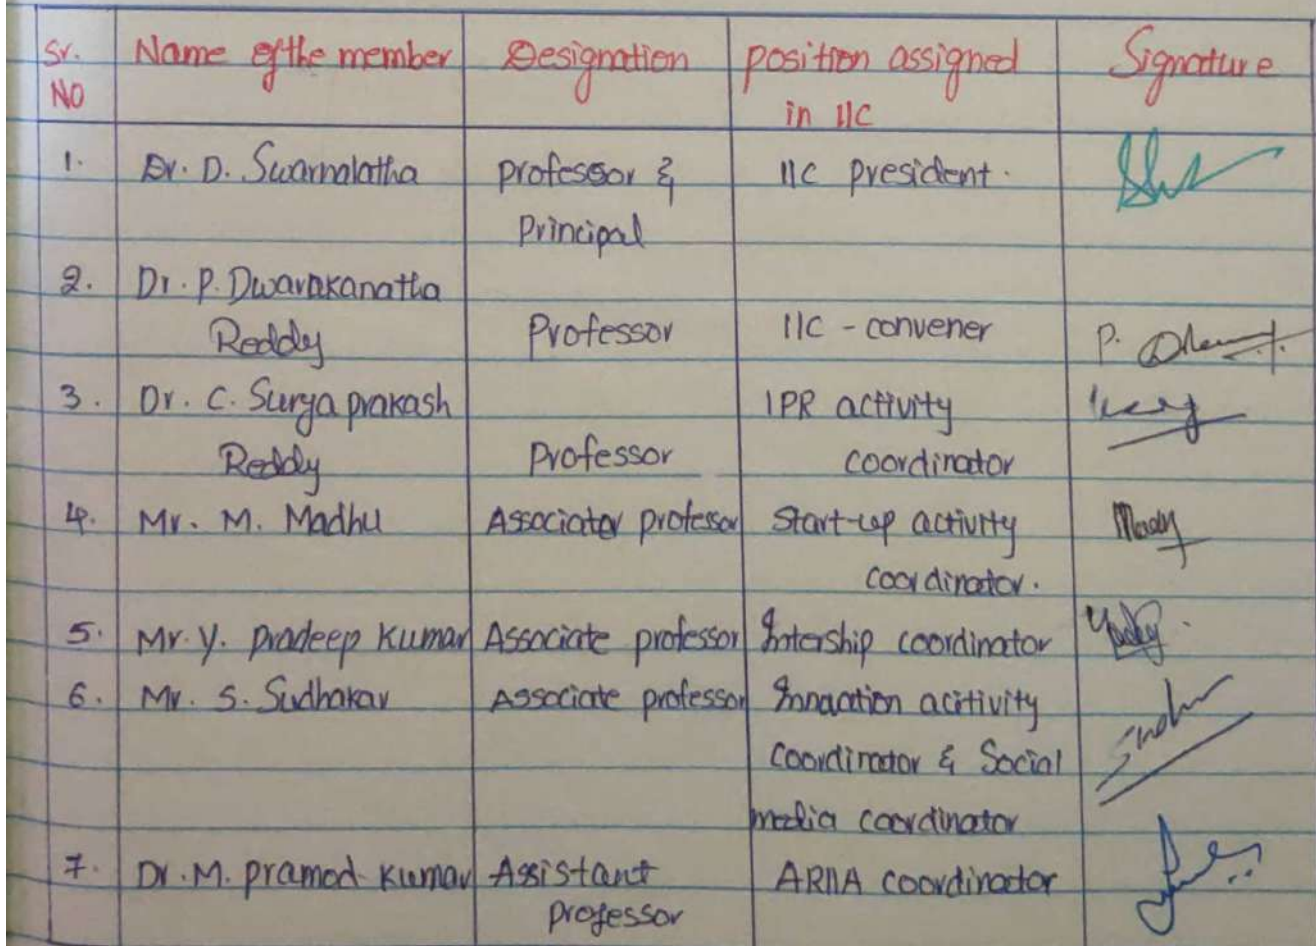 Sr. Name of the member Designation position assigned Signature
NO in IIC
1. Dr. D. Swarnalatha professor & IIC president.
Principal
2. Dr. P. Dwarakanatha
Reddy Professor IIC - convener P.
3. Dr. C. Surya prakash IPR activity
Reddy Professor coordinator
4. Mr. M. Madhu Associator professor Start-up activity
coordinator.
5. Mr. Y. Pradeep Kumar Associate professor Intership coordinator
6. Mr. S. Sudhakar Associate professor Innaction acitivity
Coordinator & Social
media coordinator
7. Dr. M. pramod Kumar Assistant ARIIA coordinator
professor